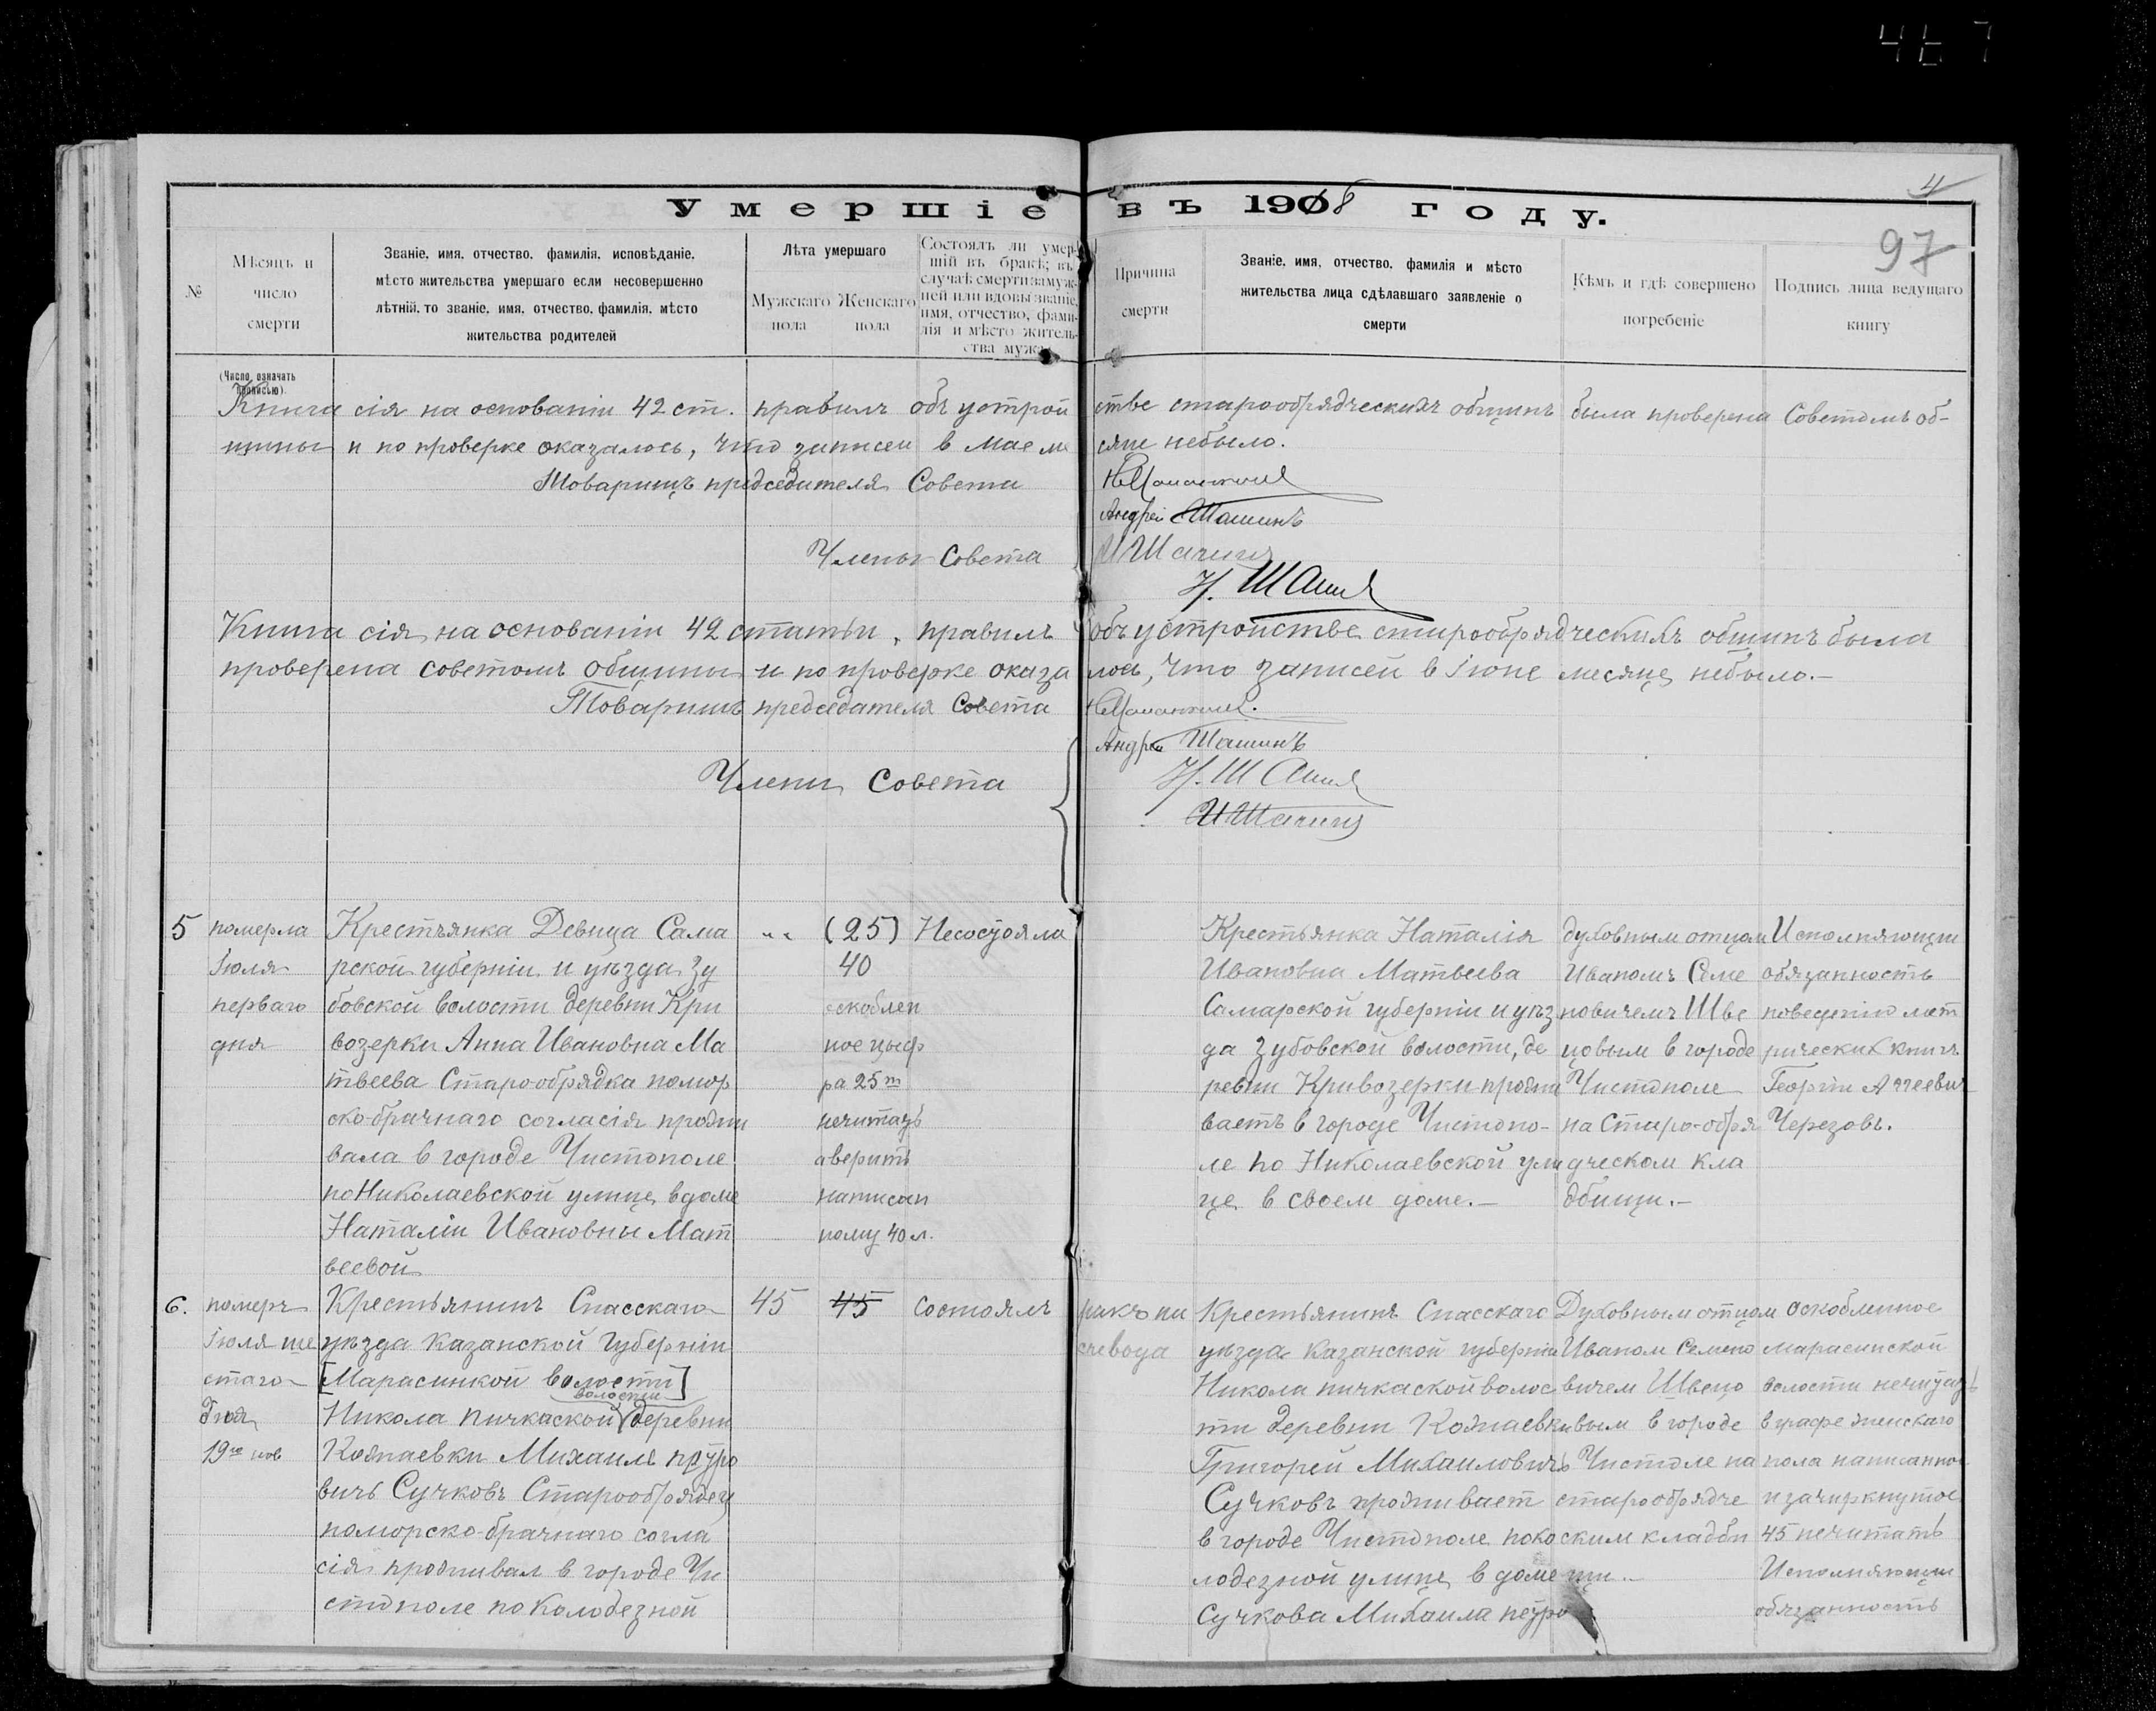 4
97
Умершіе въ 1908 году.
№
Мѣсяцъ и число смерти
Званіе, имя, отчество, фамилія, исповѣданіе,
мѣсто жительства умершаго если несовершенно
лѣтній, то званіе, имя, отчество, фамилія, мѣсто
жительства родителей
Лѣта умершаго
Мужскаго пола
Женскаго пола
Состоялъ ли умер-
шій въ бракѣ; въ
случаѣ смерти замуж-
ней или вдовы званіе,
имя, отчество, фами-
лія и мѣсто житель-
ства мужа
Причина смерти
Званіе, имя, отчество, фамилія и мѣсто
жительства лица сдѣлавшаго заявленіе о
смерти
Кѣмъ и гдѣ совершено
погребеніе
Подпись лица ведущаго
книгу
(Число означать
прописью)
Книга сія на основаніи 42 ст. правилъ объ устрой стве старообрядческихъ общинъ была проверена Советомъ об-
щины и по проверке оказалось, что записей в Мае ме сяце небыло.
Товарищъ председателя Совета
Андрей Шашинъ
Члены Совета
Н. Шашин
Книга сія на основаніи 42 статьи, правилъ объ устройстве старообрядческихъ общинъ была
проверена советомъ общины и по проверке оказа лось, что записей в Іюне месяце небыло.—
Товарищъ председателя Совета
Андрей Шашинъ
Члены Совета
Н. Шашин
5
померла
Іюля
перваго
дня
Крестьянка Девица Сама
рской губерніи и уѣзда Зу
бовской волости деревни Кри
возерки Анна Ивановна Ма
твеева Старообрядка помор
ско-брачнаго согласія прожи
вала в городе Чистополе
по Николаевской улице в доме
Наталіи Ивановны Мат
веевой
„ „
(25)
40
оскоблен
ное цыф
ра 25т
нечитать
аверить
написан
ному 40 л.
Несостояла
Крестьянка Наталія
Ивановна Матвеева
Самарской губерніи и уѣз
да Зубовской волости, де
ревни Кривозерки прожи
ваетъ в городе Чистопо-
ле по Николаевской ули
це в своем доме.—
духовным отцом
Иваномъ Семе
новичемъ Шве
цовым в городе
Чистополе
на Старо-обря
дческом кла
дбищи.—
Исполняющи
обязанность
поведенію мет
рических книгъ
Георгіи Аггеевич
Черезовъ.
6.
померъ
Іюля ше
стаго
дня
19го нов
Крестьянинъ Спасскаго
уѣзда Казанской Губерніи
[Марасинкой волости]
волости
Никола пичкаской деревни
Кожаевки Михаилъ петро
вичъ Сучковъ Старообрядец
поморско-брачнаго согла
сія проживал в городе Чи
стополе по Колодезной
45
45
состоялъ
Крестьянинъ Спасскаго
уѣзда Казанской губерніи
Никола пичкаской волос
ти деревни Кожаевки
Григорей Михаиловичъ
Сучковъ проживает
в городе Чистополе поко
лодезной улице в доме
Сучкова Михаила петро
Духовным отцом
Иваном Семено
вичем Швецо
вым в городе
Чистполе на
старообрядче
ским кладби
щи..
оскобленное
марасинской
волости нечитать
в графе женскаго
пола написанное
и зачиркнутое
45 нечитать
Исполняющи
обязанность